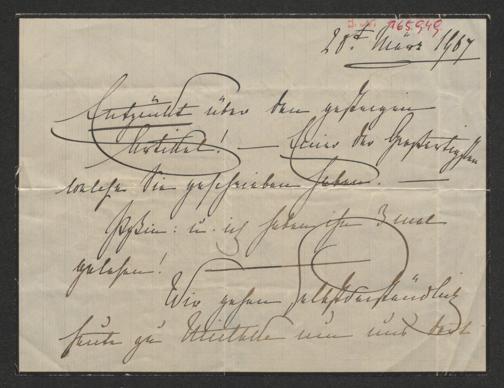 I.N. 165949
28t März 1907
Entzückt über den gestrigen
Artikel! — Einer der Großartigsten
welche Sie geschrieben haben. —
u. ich haben ihn 3 mal
gelesen! —
Wir gehen selbstverständlich
heute zu um uns dort